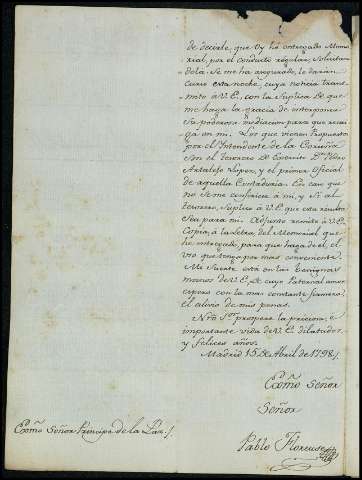 de decirle, que oy he entregado Memo
rial, por el conducto regular, solicitan
dola. Se me ha asegurado, le darán
curso esta noche, cuya noticia trans
mito à V.E. con la suplica de que
me haga la gracia de interponer
su poderosa mediacion para que recai
ga en mi. Los que vienen propuestos
por el Intendente de la Coruña
son el tesorero de Dn. Pedro
Artalejo Lopez, y el primer oficial
de aquella Contaduria. En caso que
no se me confiriese à mi, y si al
tesorero, suplico à V.E. que esta resulta
sea para mi. Adjunto remito à V.E.
Copia, à la letra, del Memorial que
he entregado, para que haga de el, el
uso que tenga por mas conveniente.
Mi suerte está en las benignas
manos de V.E. de cuyo Paternal amor
espero con la mas constante
el alivio de mis penas.
Nro. Sor. prospere la preciosa, è
importante vida de V.E. dilatados
y felices años.
Madrid 15 de Abril de 1798.
Exmo. Señor
Señor
Pablo
Exmo. Señor Principe de la Paz.